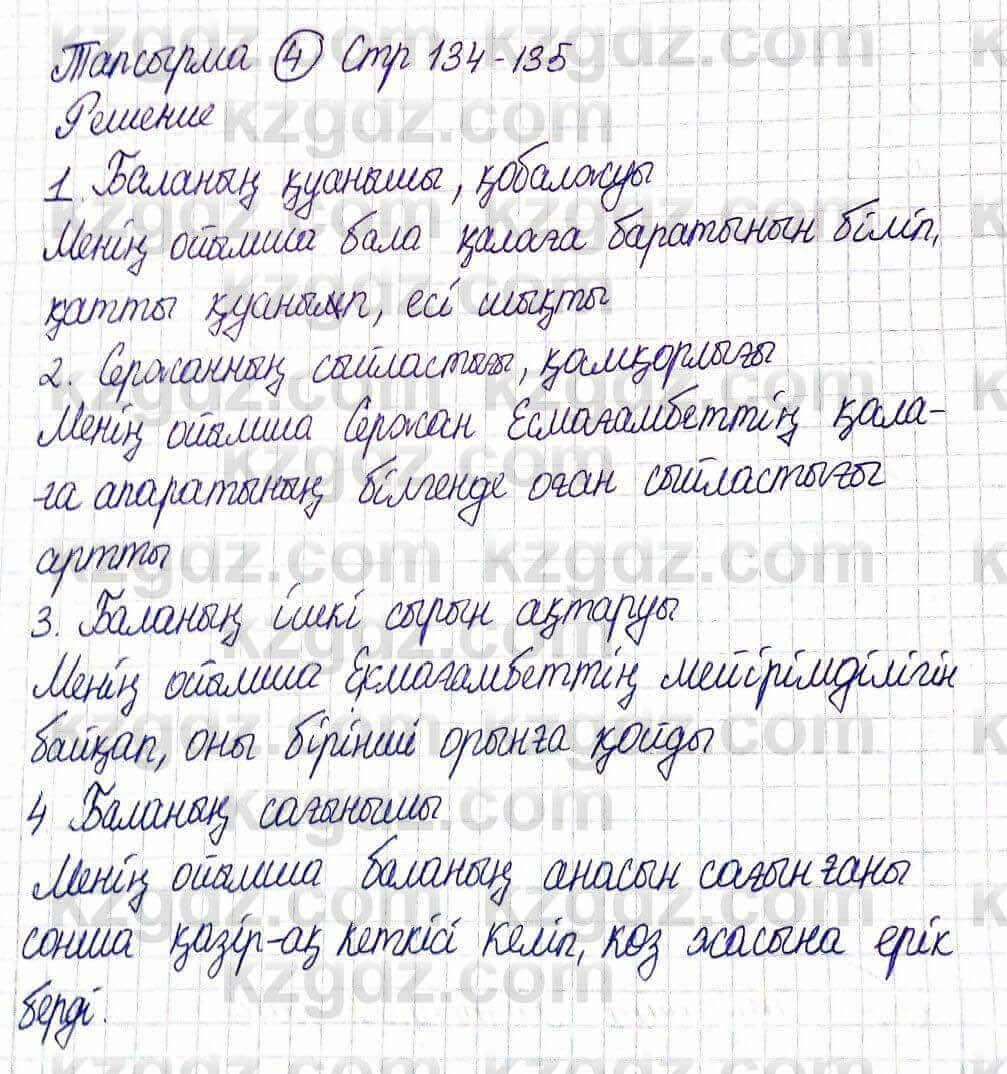 Тапсырма 4 Стр 134-135
Решение
1. Баланың қуанышы, қобалжуы
Менің ойымша бала қалаға баратынын біліп,
қатты қуанып, есі шықты
2. Сержанның сыйластығы, қамқорлығы
Менің ойымша Сержан Есмағамбеттің қала-
ға апаратының білгенде оған сыйластығы
артты
3. Баланың ішкі сырын ақтаруы
Менің ойымша Есмағамбеттің мейірімділігін
байқап, оны бірінші орынға қойды
4 Баланың сағынышы
Менің ойымша баланың анасын сағынғаны
сонша қазір-ақ кеткісі келіп, көз жасына ерік
берді.
kzgdz.com